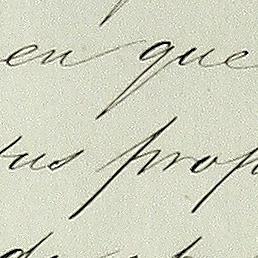 en que
tus prop